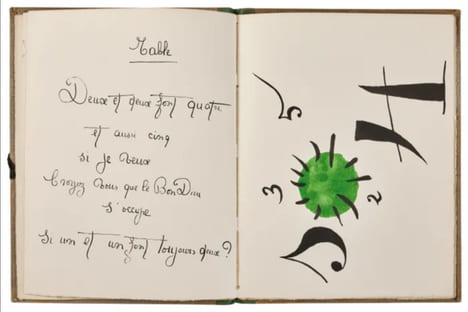 Table
Deux et deux font quatre
et aussi cinq
si je veux
Croyez vous que le Bon Dieu
s'occupe
Si un et un font toujours deux?
5
4
3
2